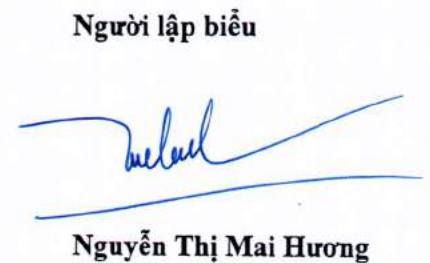 Người lập biểu
Nguyễn Thị Mai Hương